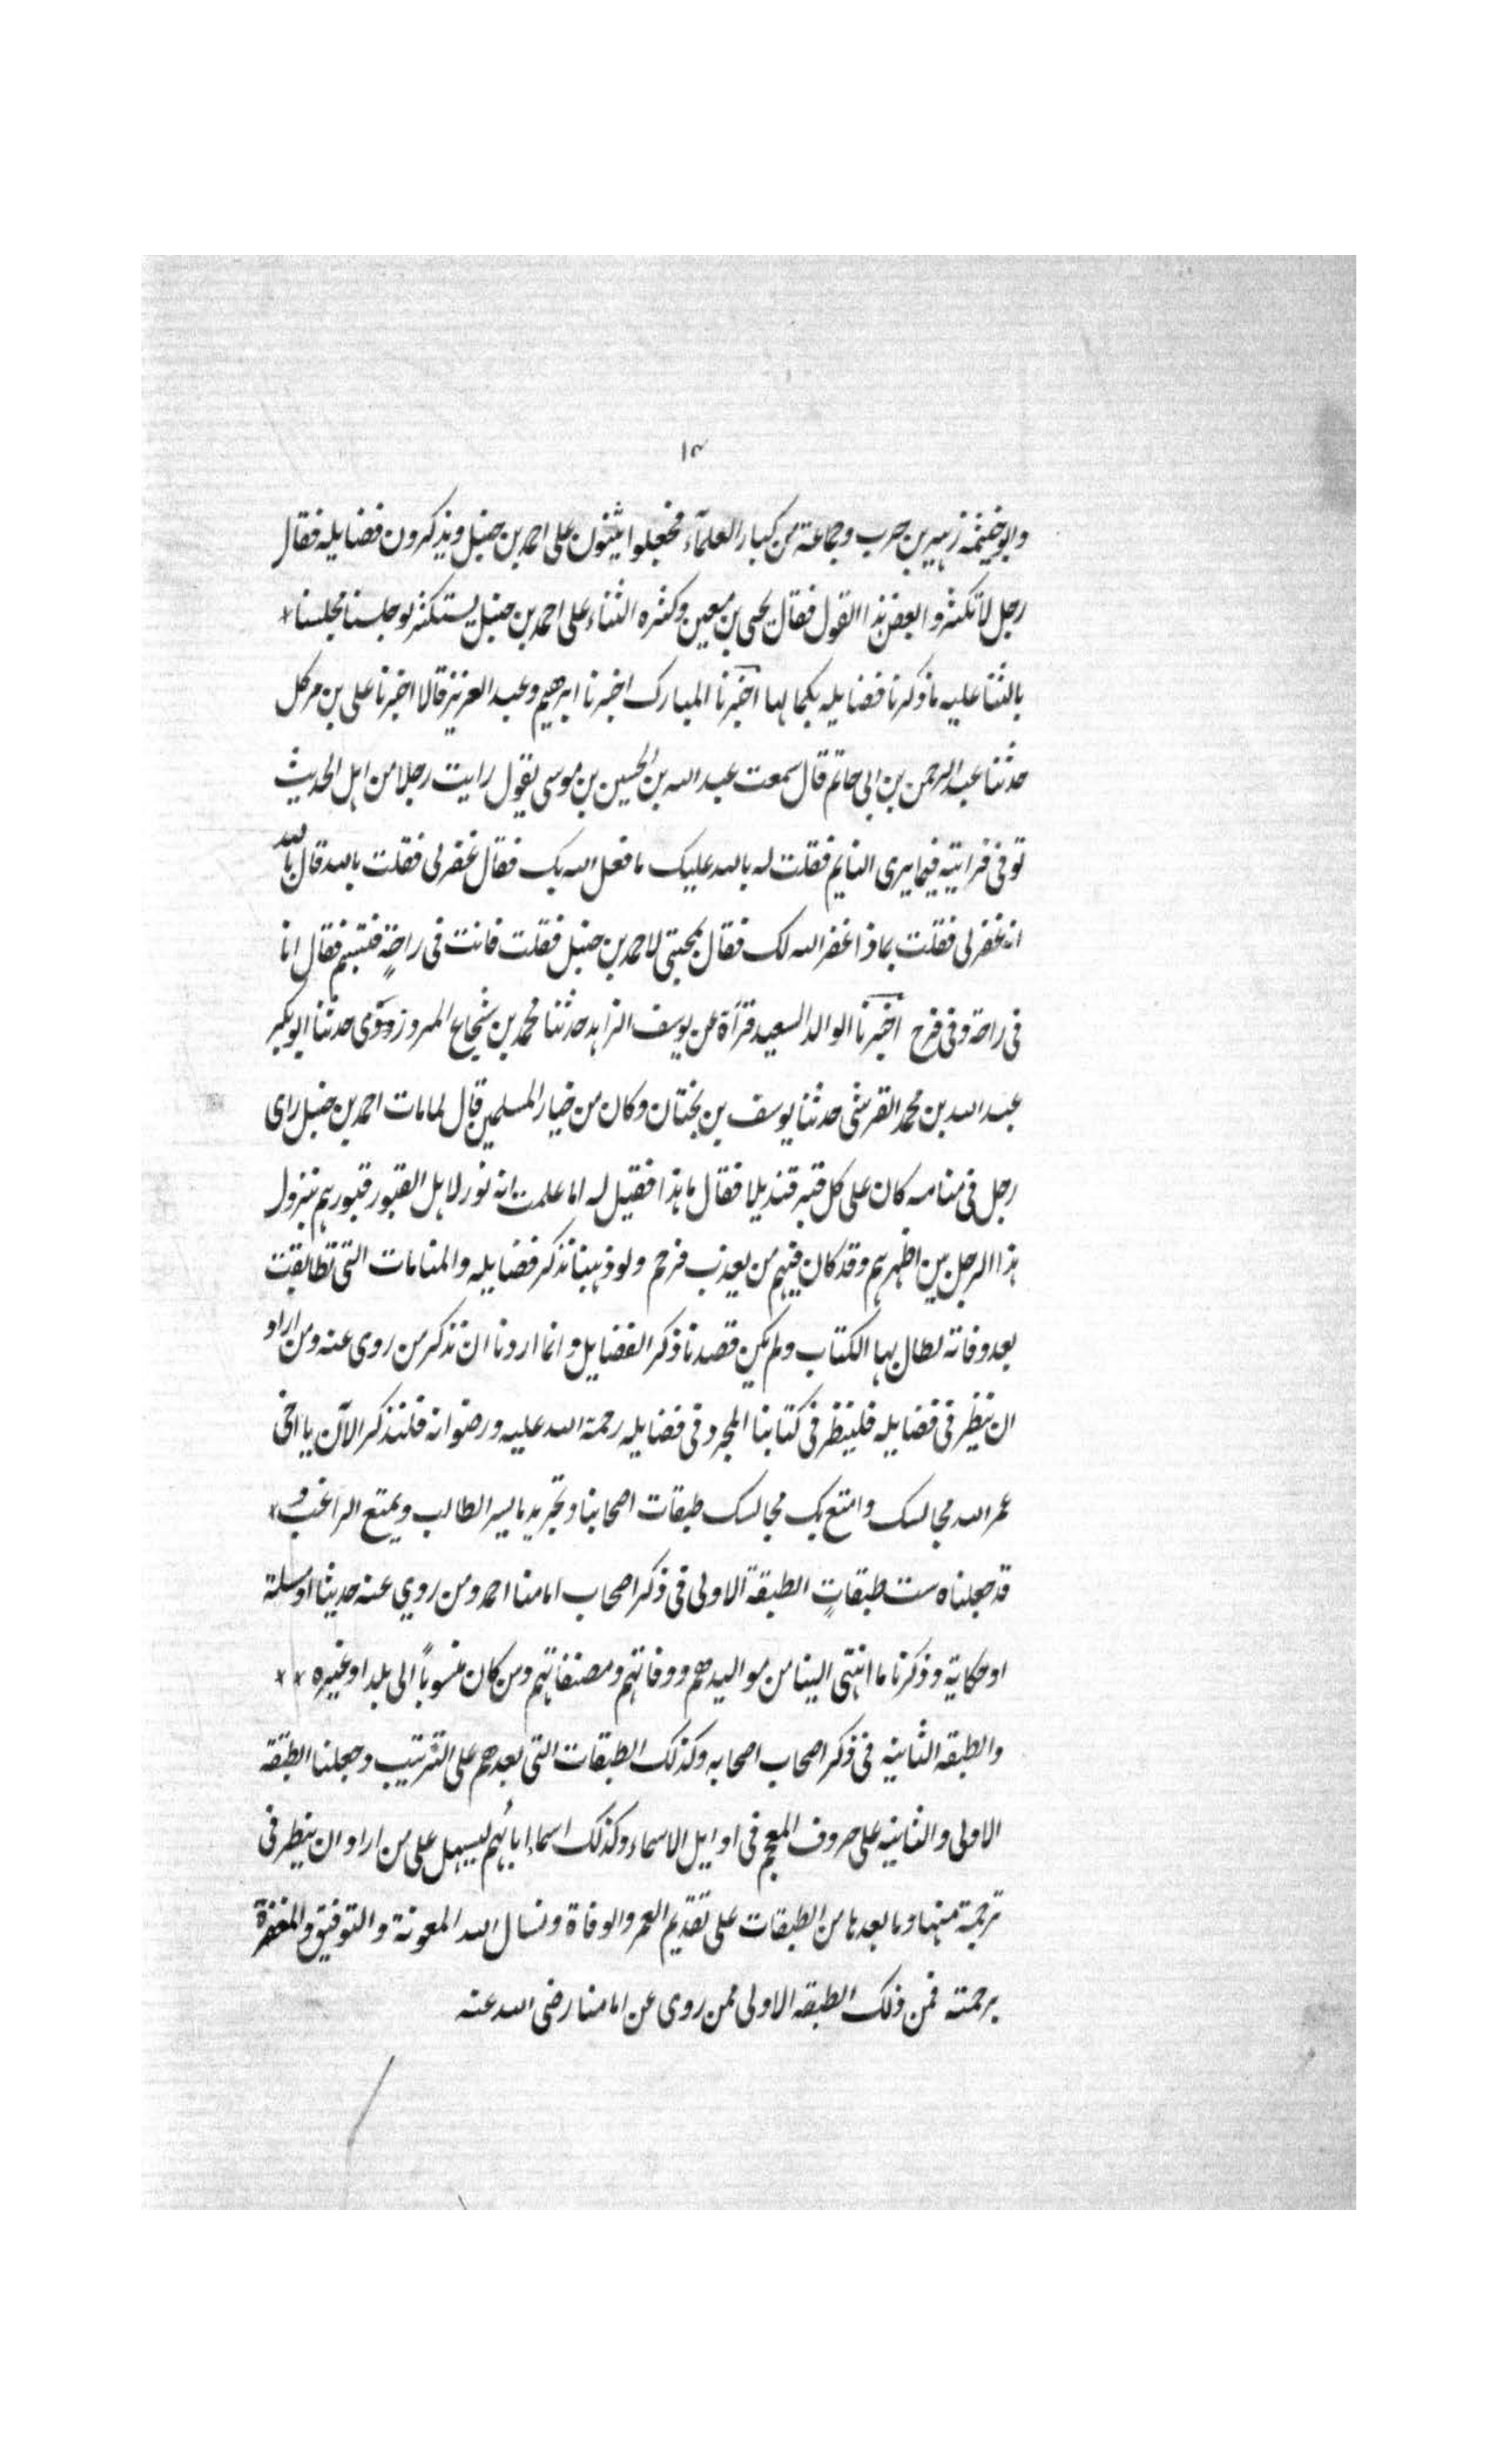 ١٣
وابو خيثمه زهير بن حرب وجماعة من كبار العلمآء فجعلوا يثنون على احمد بن حنبل ويذكرون فضايله فقال
رجل لا تكثروا بعض هذا القول فقال يحيى بن معين وكثره الثناء على احمد بن حنبل يستكثر لو جلسنا مجلسنا *
بالثنا عليه ما ذكرنا فضايله بكمالها اخبرنا المبارك اخبرنا ابرهيم وعبد العزيز قالا اخبرنا على بن مركل
حدثنا عبد الرحمن بن ابى حاتم قال سمعت عبد الله بن الحسين بن موسى يقول رايت رجلا من اهل الحديث
توفى فرايته فيما يرى النايم فقلت له بالله عليك ما فعل الله بك فقال غفر لى فقلت بالله قال بالله
انه غفر لى فقلت بماذا غفر الله لك فقال بمحبتى لاحمد بن حنبل فقلت فانت فى راحةٍ فتبسم فقال انا
فى راحة وفى فرح اخبرنا الوالد السعيد قرآة عن يوسف الزاهد حدثنا محمد بن شجاع المروزوى حدثنا ابو بكر
عبد الله بن محمد القرشى حدثنا يوسف بن بختان وكان من خيار المسلمين قال لما مات احمد بن حنبل راى
رجل فى منامه كان على كل قبر قنديلا فقال ما هذا فقيل له اما علمت انه نور لاهل القبور قبورهم بنزول
هذا الرجل بين اظهرهم وقد كان فيهم من يعذب فرحم ولو ذهبنا نذكر فضايله والمنامات التى تطابقت
بعد وفاته لطال بها الكتاب ولم يكن قصدنا ذكر الفضايل وانما اردنا ان نذكر من روى عنه ومن اراد
ان ينظر فى فضايله فلينظر فى كتابنا المجرد فى فضايله رحمة الله عليه ورضوانه فلنذكر الآن يا اخى
عمر الله مجالسك وامتع بك مجالسك طبقات اصحابنا وتجريد ما يسر الطالب ويمتع الراغب و *
قد جعلناه ست طبقاتٍ الطبقة الاولى فى ذكر اصحاب امامنا احمد ومن روي عنه حديثا او مسلة
او حكاية وذكرنا ما انتهى الينا من مواليدهم ووفاتهم ومصنفاتهم ومن كان منسوباً الى بلد او غيره * *
والطبقه الثانيه فى ذكر اصحاب اصحابه وكذلك الطبقات التى بعدهم على الترتيب وجعلنا الطبقه
الاولى والثانيه على حروف المعجم فى اوايل الاسماء وكذلك اسماء ابائهم ليسهل على من اراد ان ينظر فى
ترجمة منها وما بعدها من الطبقات على تقديم العمر والوفاة ونسال الله المعونة والتوفيق والمغفرة
برحمته فمن ذلك الطبقه الاولى ممن روى عن امامنا رضى الله عنه